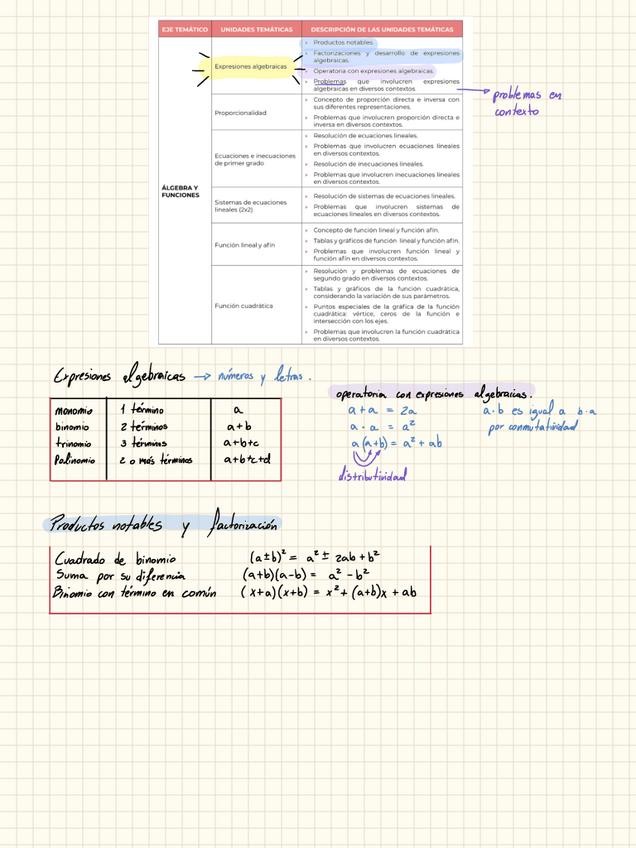 EJE TEMÁTICO UNIDADES TEMÁTICAS DESCRIPCIÓN DE LAS UNIDADES TEMÁTICAS
ÁLGEBRA Y
FUNCIONES
Expresiones algebraicas
Productos notables.
Factorizaciones y desarrollo de expresiones
algebraicas.
Operatoria con expresiones algebraicas.
Problemas que involucren expresiones
algebraicas en diversos contextos.
problemas en
contexto
Proporcionalidad
Concepto de proporción directa e inversa con
sus diferentes representaciones.
Problemas que involucren proporción directa e
inversa en diversos contextos.
Ecuaciones e inecuaciones
de primer grado
Resolución de ecuaciones lineales.
Problemas que involucren ecuaciones lineales
en diversos contextos.
Resolución de inecuaciones lineales.
Problemas que involucren inecuaciones lineales
en diversos contextos.
Sistemas de ecuaciones
lineales (2x2)
Resolución de sistemas de ecuaciones lineales.
Problemas que involucren sistemas de
ecuaciones lineales en diversos contextos.
Función lineal y afín
Concepto de función lineal y función afín.
Tablas y gráficos de función lineal y función afín.
Problemas que involucren función lineal y
función afín en diversos contextos.
Función cuadrática
Resolución y problemas de ecuaciones de
segundo grado en diversos contextos.
Tablas y gráficos de la función cuadrática,
considerando la variación de sus parámetros.
Puntos especiales de la gráfica de la función
cuadrática: vértice, ceros de la función e
intersección con los ejes.
Problemas que involucren la función cuadrática
en diversos contextos.
Expresiones algebraicas → números y letras.
monomio 1 término a
binomio 2 términos a+b
trinomio 3 términos a+b+c
Polinomio 2 o más términos a+b+c+d
operatoria con expresiones algebraicas.
a+a = 2a
a·a = a²
a(a+b) = a² + ab
distributividad
a·b es igual a b·a
por conmutatividad
Productos notables y factorización
Cuadrado de binomio (a±b)² = a² ± 2ab + b²
Suma por su diferencia (a+b)(a-b) = a² - b²
Binomio con término en común (x+a)(x+b) = x² + (a+b)x + ab